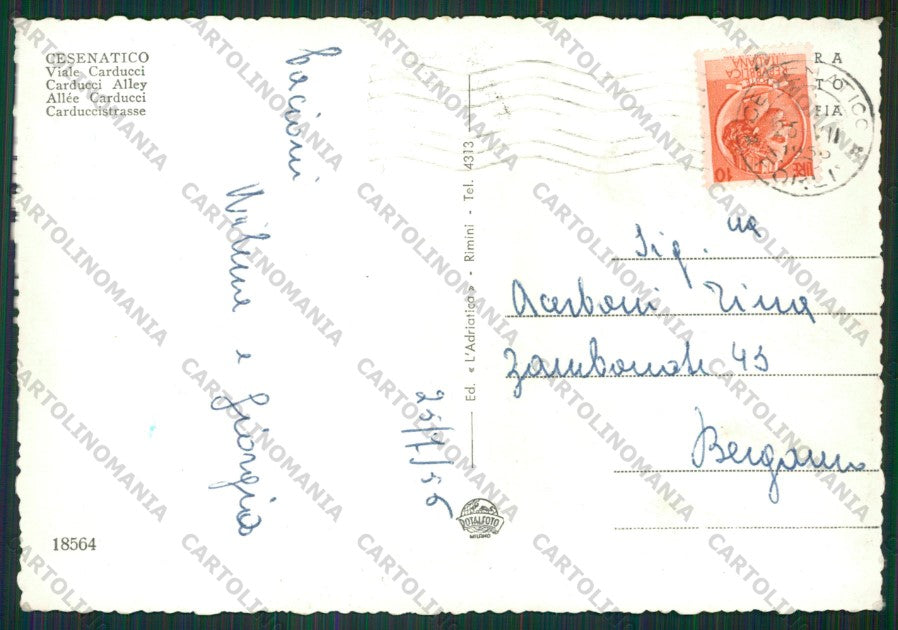 CESENATICO
Viale Carducci
Carducci Alley
Allée Carducci
Carduccistrasse
Bacioni
e Giorgio
25/7/56
18564
Ed. « L'Adriatico » - Rimini - Tel. 4313
ROTALFOTO
MILANO
REPUBBLICA
ITALIANA
LIRE 10
RA
TO
FIA
FORLI
Sig.na
Acerboni Rina
Zambonate 43
Bergamo
CARTOLINOMANIA